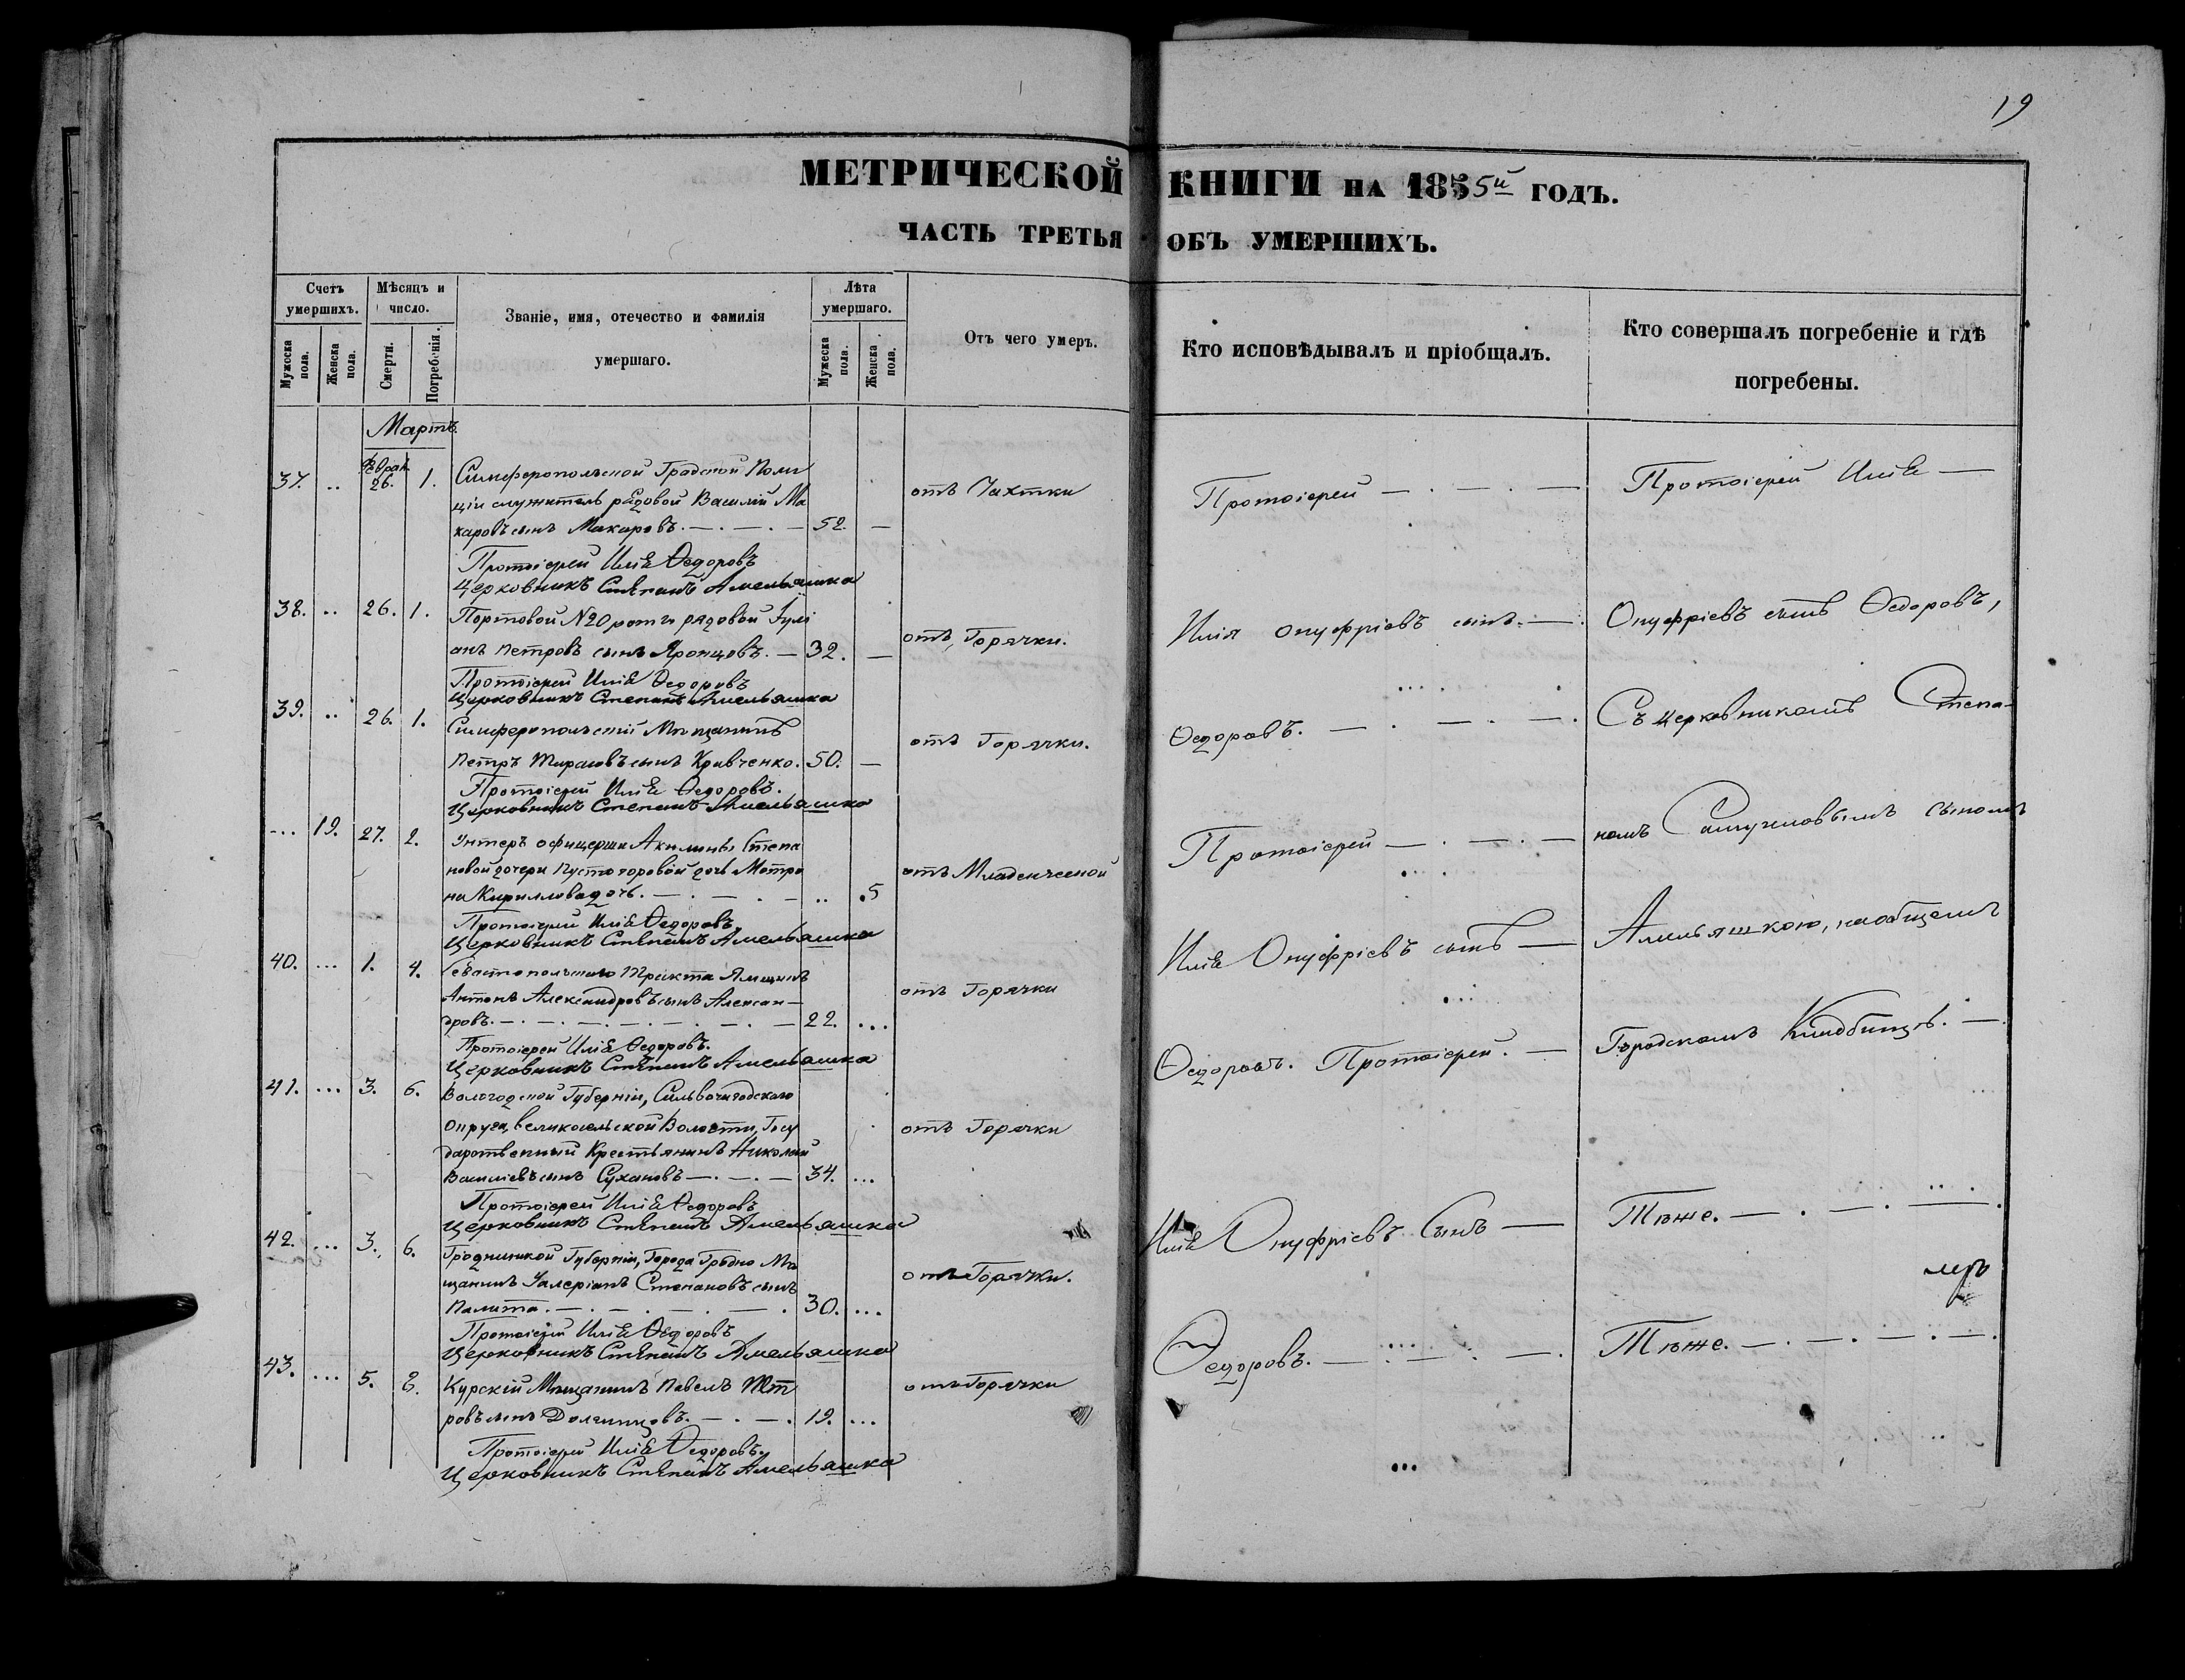 19
МЕТРИЧЕСКОЙ КНИГИ НА 1855й ГОДЪ.
ЧАСТЬ ТРЕТЬЯ ОБЪ УМЕРШИХЪ.
Счетъ умершихъ.
Мужеска пола.
Женска пола.
Мѣсяцъ и число.
Смерти.
Погребенія.
Званіе, имя, отечество и фамилія умершаго.
Лѣта умершаго.
Мужеска пола.
Женска пола.
Отъ чего умеръ.
Кто исповѣдывалъ и пріобщалъ.
Кто совершалъ погребеніе и гдѣ погребены.
Мартъ.
37. .. 26. 1. Симферопольской Градской Поли
ціи служитель рядовой Василій Ма
каровъ сынъ Макаровъ. 52. —
отъ Чахтки
Протоіерей Илія Ѳедоровъ
Церковникъ Степанъ Амельяшка
38. .. 26. 1. Портовой №20 роты рядовой Іулі
анъ Петровъ сынъ Яронцовъ. — 32. —
отъ Горячки.
Протоіерей Илія Ѳедоровъ
Церковникъ Степанъ Амельяшка
39. .. 26. 1. Симферопольскій Мѣщанинъ
Петръ сынъ Кравченко. 50. —
отъ Горячки.
Протоіерей Илія Ѳедоровъ.
Церковникъ Степанъ Амельяшка
... 19. 27. 2. Унтеръ офицерши Акилины Степа
новой дочери дочь Матро
на Кириллова дочь. .. .5
отъ Младенческой
Протоіерей Илія Ѳедоровъ.
Церковникъ Степанъ Амельяшка
40. ... 1. 4. Севастопольскаго Тракта Ямщикъ
Антонъ Александровъ сынъ Алексан-
дровъ. 22. ...
отъ Горячки
Протоіерей Илія Ѳедоровъ.
Церковникъ Степанъ Амельяшка
41. ... 3. 6. Вологодской Губерніи, Сильвочигодскаго
Округа, Великосельской Волости, Госу
дарственный Крестьянинъ Николай
Василіевъ сынъ Сухановъ 34. ...
отъ Горячки
Протоіерей Илія Ѳедоровъ
Церковникъ Степанъ Амельяшка
42. ... 3. 6. Гродненской Губерніи, Города Гродно Мѣ
щанинъ Валеріанъ Степановъ сынъ
30. ...
отъ Горячки.
Протоіерей Илія Ѳедоровъ
Церковникъ Степанъ Амельяшка
43. ... 5. 8. Курскій Мѣщанинъ Павелъ
ровъ сынъ 19. ...
отъ Горячки
Протоіерей Илія Ѳедоровъ.
Церковникъ Степанъ Амельяшка
Протоіерей
Илія Онуфріевъ сынъ.
Ѳедоровъ.
Протоіерей
Илія Онуфріевъ сынъ
Ѳедоровъ. Протоіерей.
Илія Онуфріевъ Сынъ
Ѳедоровъ.
Протоіерей Илія
Онуфріевъ сынъ Ѳедоровъ,
Съ церковникомъ Степа-
номъ Самуиловымъ сыномъ
Амельяшкою, на общемъ
Городскомъ Кладбищѣ.
Тѣже.
Тѣже.